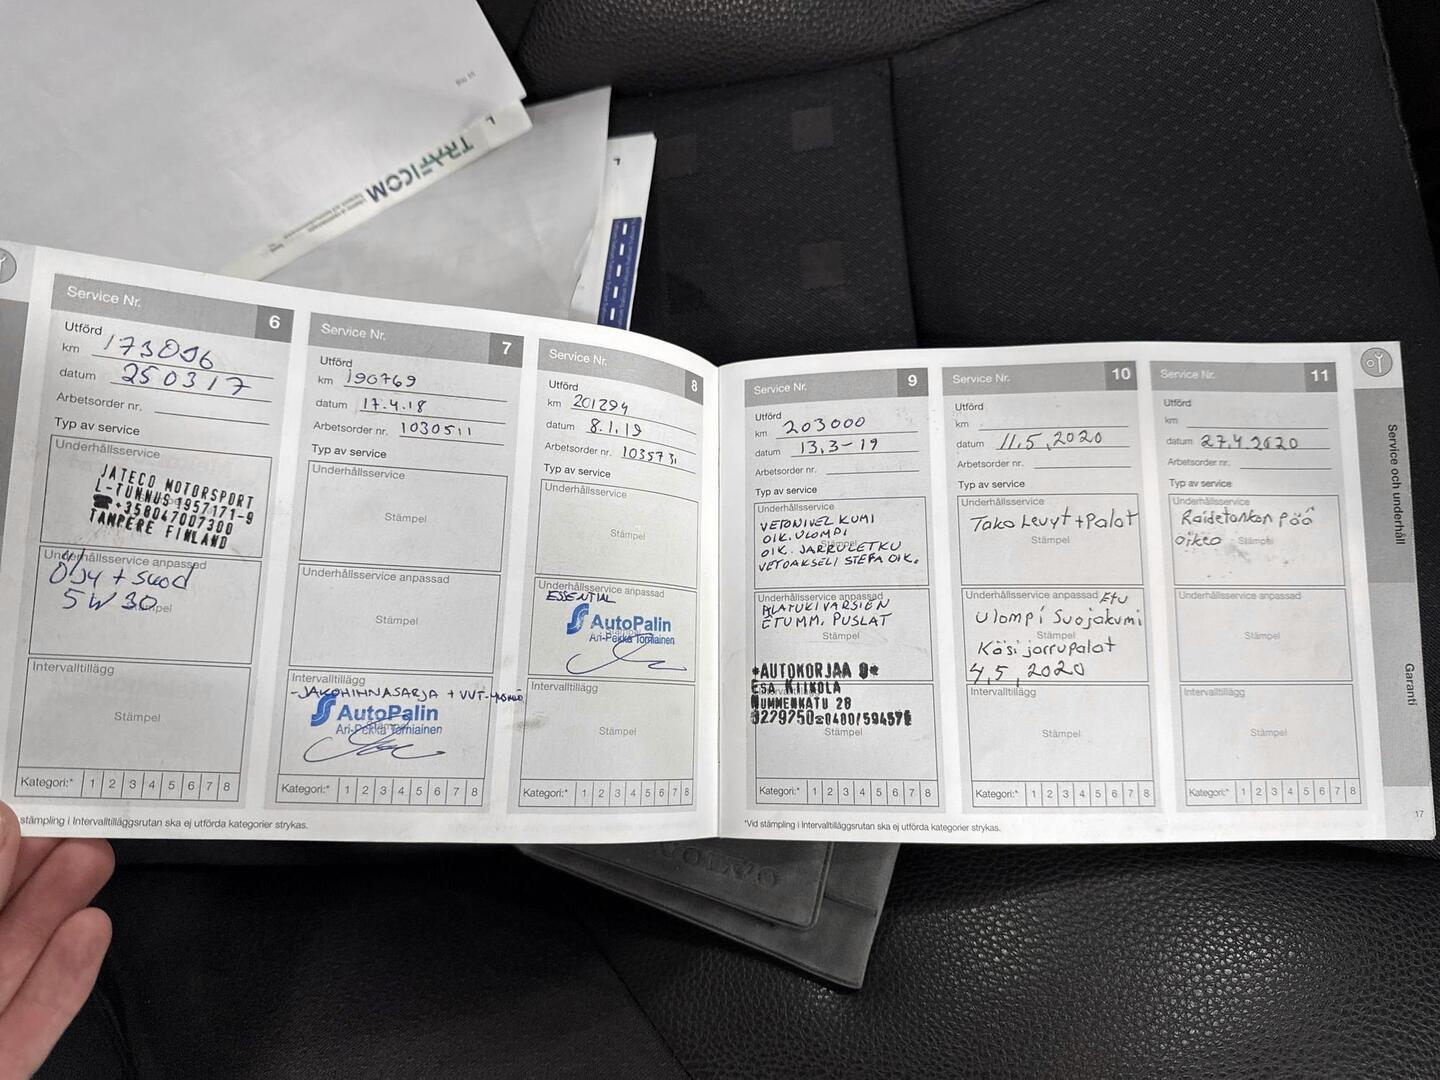 TRAFICOM
Service Nr. 6
Utförd
km 173096
datum 250317
Arbetsorder nr.
Typ av service
Underhållsservice
JATECO MOTORSPORT
L-TUNNUS 1957171-9
☎+358047007300
TAMPERE FINLAND
Underhållsservice anpassad
Öljy + suod
5W30
Stämpel
Intervalltillägg
Stämpel
Kategori:* 1 2 3 4 5 6 7 8
stämpling i Intervalltilläggsrutan ska ej utförda kategorier strykas.
Service Nr. 7
Utförd
km 190769
datum 17.4.18
Arbetsorder nr. 1030511
Typ av service
Underhållsservice
Stämpel
Underhållsservice anpassad
Stämpel
Intervalltillägg
-JAKOHIHNASARJA + VVT-
AutoPalin
Ari-Pekka Torniainen
Kategori:* 1 2 3 4 5 6 7 8
Service Nr. 8
Utförd
km 201294
datum 8.1.19
Arbetsorder nr. 103573
Typ av service
Underhållsservice
Stämpel
Underhållsservice anpassad
ESSENTIAL
AutoPalin
Ari-Pekka Torniainen
Intervalltillägg
Stämpel
Kategori:* 1 2 3 4 5 6 7 8
Service Nr. 9
Utförd
km 203000
datum 13.3-19
Arbetsorder nr.
Typ av service
Underhållsservice
VETONIVEL KUMI
OIK. ULOMPI
OIK. JARRULETKU
VETOAKSELI STEFA OIK.
Underhållsservice anpassad
ALATUKIVARSIEN
ETUMM. PUSLAT
Stämpel
*AUTOKORJAA
ESA KIIKOLA
NUMMENKATU 28
Intervalltillägg
Stämpel
Kategori:* 1 2 3 4 5 6 7 8
*Vid stämpling i Intervalltilläggsrutan ska ej utförda kategorier strykas.
Service Nr. 10
Utförd
km
datum 11.5.2020
Arbetsorder nr.
Typ av service
Underhållsservice
Taka Levyt + Palat
Stämpel
Underhållsservice anpassad Etu
Ulompi Suojakumi
Stämpel
Käsi jarrupalat
4.5.2020
Intervalltillägg
Stämpel
Kategori:* 1 2 3 4 5 6 7 8
Service Nr. 11
Utförd
km
datum 27.4.2020
Arbetsorder nr.
Typ av service
Underhållsservice
Raidetankon pää
oikea Stämpel
Underhållsservice anpassad
Stämpel
Intervalltillägg
Stämpel
Kategori:* 1 2 3 4 5 6 7 8
Service och underhåll
Garanti
17
VOLVO